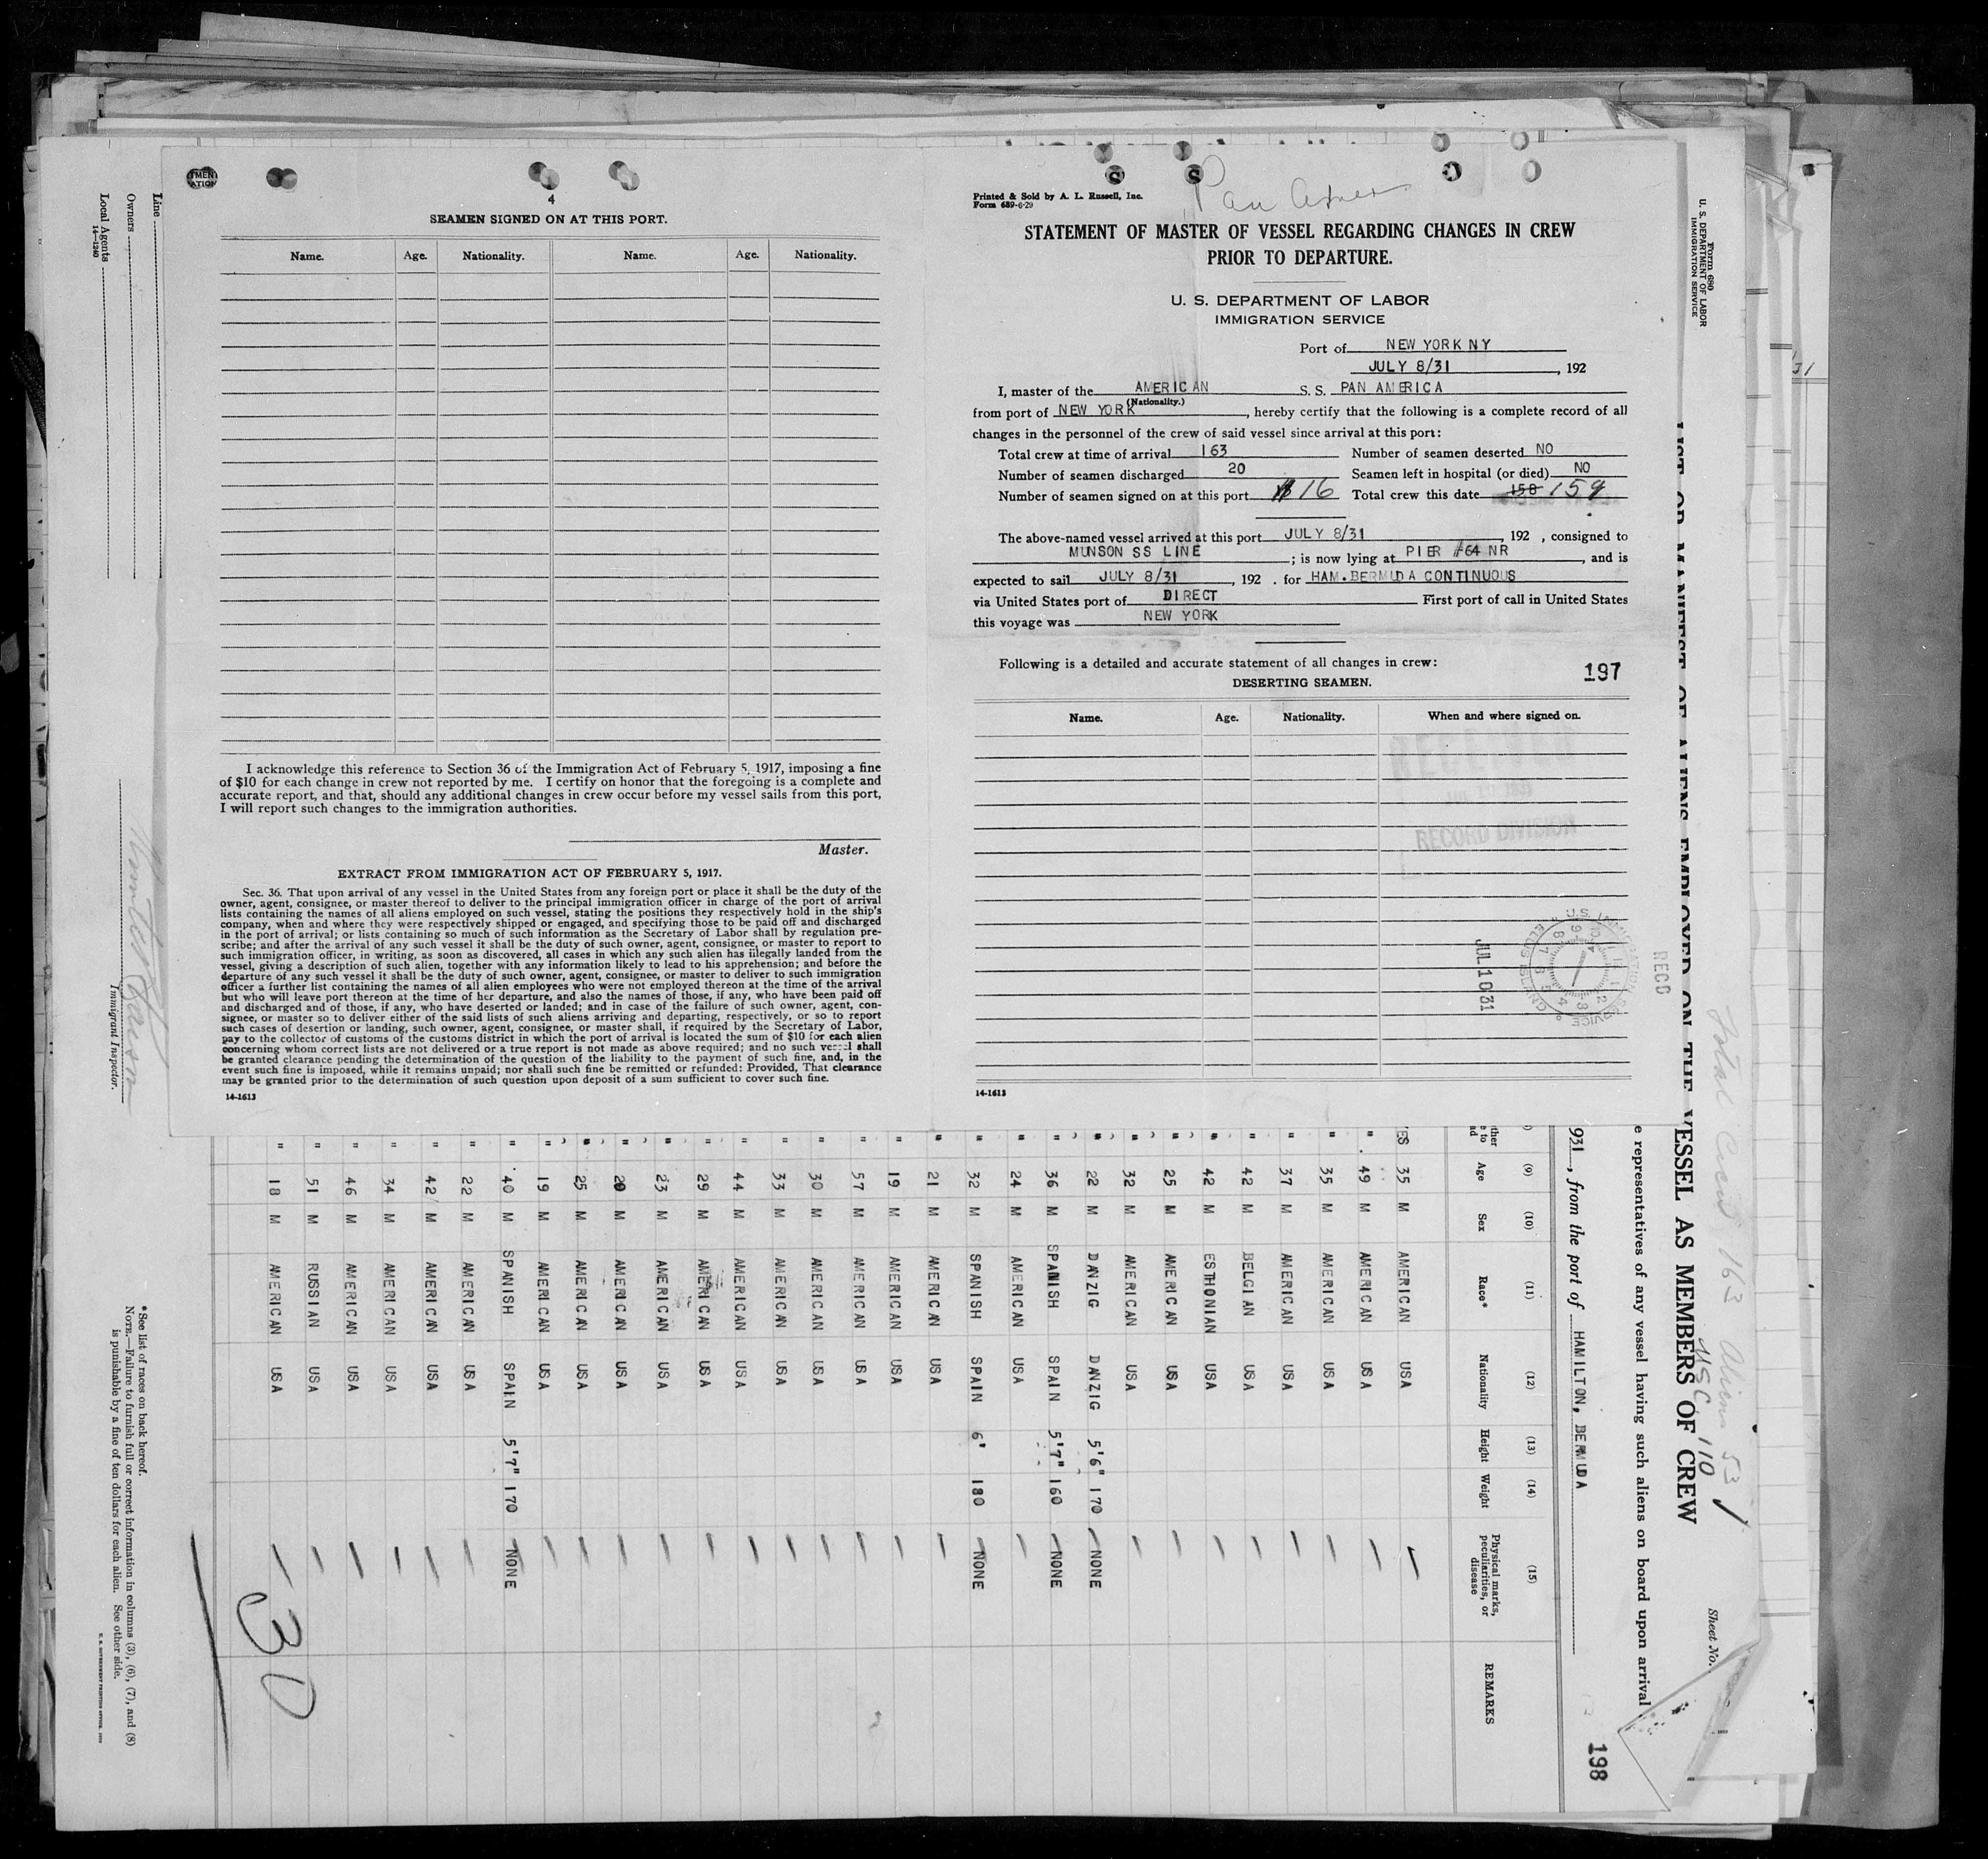 4
SEAMEN SIGNED ON AT THIS PORT.
Name. Age. Nationality. Name. Age. Nationality.
I acknowledge this reference to Section 36 of the Immigration Act of February 5, 1917, imposing a fine
of $10 for each change in crew not reported by me. I certify on honor that the foregoing is a complete and
accurate report, and that, should any additional changes in crew occur before my vessel sails from this port,
I will report such changes to the immigration authorities.
Master.
EXTRACT FROM IMMIGRATION ACT OF FEBRUARY 5, 1917.
Sec. 36. That upon arrival of any vessel in the United States from any foreign port or place it shall be the duty of the
owner, agent, consignee, or master thereof to deliver to the principal immigration officer in charge of the port of arrival
lists containing the names of all aliens employed on such vessel, stating the positions they respectively hold in the ship's
company, when and where they were respectively shipped or engaged, and specifying those to be paid off and discharged
in the port of arrival; or lists containing so much of such information as the Secretary of Labor shall by regulation pre-
scribe; and after the arrival of any such vessel it shall be the duty of such owner, agent, consignee, or master to report to
such immigration officer, in writing, as soon as discovered, all cases in which any such alien has illegally landed from the
vessel, giving a description of such alien, together with any information likely to lead to his apprehension; and before the
departure of any such vessel it shall be the duty of such owner, agent, consignee, or master to deliver to such immigration
officer a further list containing the names of all alien employees who were not employed thereon at the time of the arrival
but who will leave port thereon at the time of her departure, and also the names of those, if any, who have been paid off
and discharged and of those, if any, who have deserted or landed; and in case of the failure of such owner, agent, con-
signee, or master so to deliver either of the said lists of such aliens arriving and departing, respectively, or so to report
such cases of desertion or landing, such owner, agent, consignee, or master shall, if required by the Secretary of Labor,
pay to the collector of customs of the customs district in which the port of arrival is located the sum of $10 for each alien
concerning whom correct lists are not delivered or a true report is not made as above required; and no such vessel shall
be granted clearance pending the determination of the question of the liability to the payment of such fine, and, in the
event such fine is imposed, while it remains unpaid; nor shall such fine be remitted or refunded: Provided, That clearance
may be granted prior to the determination of such question upon deposit of a sum sufficient to cover such fine.
14-1613
Printed & Sold by A. L. Russell, Inc.
Form 689-6-29
Pan Amer
STATEMENT OF MASTER OF VESSEL REGARDING CHANGES IN CREW
PRIOR TO DEPARTURE.
U. S. DEPARTMENT OF LABOR
IMMIGRATION SERVICE
Port of NEW YORK NY
JULY 8/31, 192
I, master of the AMERICAN S. S. PAN AMERICA
(Nationality.)
from port of NEW YORK, hereby certify that the following is a complete record of all
changes in the personnel of the crew of said vessel since arrival at this port:
Total crew at time of arrival 163 Number of seamen deserted NO
Number of seamen discharged 20 Seamen left in hospital (or died) NO
Number of seamen signed on at this port 16 Total crew this date 158 159
The above-named vessel arrived at this port JULY 8/31, 192 , consigned to
MUNSON SS LINE; is now lying at PIER #64 NR, and is
expected to sail JULY 8/31, 192 . for HAM.BERMUDA CONTINUOUS
via United States port of DIRECT First port of call in United States
this voyage was NEW YORK
Following is a detailed and accurate statement of all changes in crew:
197
DESERTING SEAMEN.
Name. Age. Nationality. When and where signed on.
RECEIVED
RECORD DIVISION
JUL 10 31
U.S. IMMIGRATION SERVICE ELLIS ISLAND
RECD
14-1613
Form 680
U. S. DEPARTMENT OF LABOR
IMMIGRATION SERVICE
LIST OR MANIFEST OF ALIENS EMPLOYED ON THE VESSEL AS MEMBERS OF CREW
Total Crew 163 Aliens 53
USC 110
Sheet No.
e representatives of any vessel having such aliens on board upon arrival
931, from the port of HAMILTON, BERMUDA
198
(9) (10) (11) (12) (13) (14) (15)
Age Sex Race* Nationality Height Weight Physical marks, peculiarities, or disease REMARKS
ES 35 M AMERICAN USA
" 49 M AMERICAN USA
" 35 M AMERICAN USA
" 37 M AMERICAN USA
" 42 M BELGIAN USA
" 42 M ESTHONIAN USA
" 25 M AMERICAN USA
" 32 M AMERICAN USA
" 22 M DANZIG DANZIG 5'6" 170 NONE
" 36 M SPANISH SPAIN 5'7" 160 NONE
" 24 M AMERICAN USA
" 32 M SPANISH SPAIN 6' 180 NONE
" 21 M AMERICAN USA
" 19 M AMERICAN USA
" 57 M AMERICAN USA
" 30 M AMERICAN USA
" 33 M AMERICAN USA
" 44 M AMERICAN USA
" 29 M AMERICAN USA
" 23 M AMERICAN USA
" 20 M AMERICAN USA
" 25 M AMERICAN USA
" 19 M AMERICAN USA
" 40 M SPANISH SPAIN 5'7" 170 NONE
" 22 M AMERICAN USA
" 42 M AMERICAN USA
" 34 M AMERICAN USA
" 46 M AMERICAN USA
" 51 M RUSSIAN USA
" 18 M AMERICAN USA
30
Line
Owners
Local Agents
14-1240
Immigrant Inspector.
*See list of races on back hereof.
NOTE.—Failure to furnish full or correct information in columns (3), (6), (7), and (8)
is punishable by a fine of ten dollars for each alien. See other side.